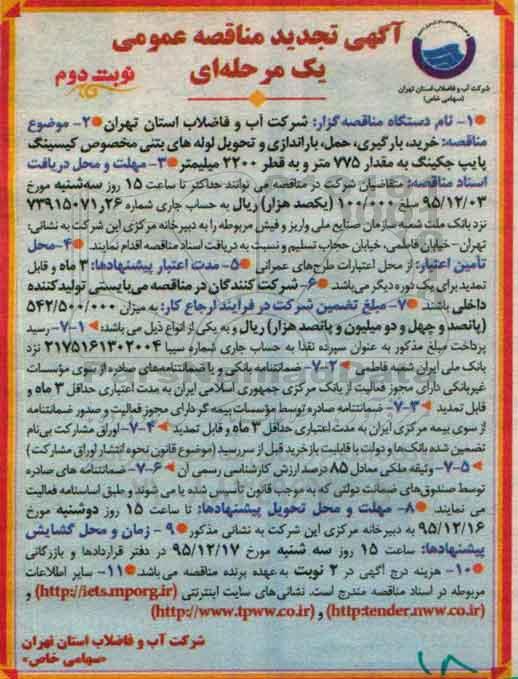 آگهی تجدید مناقصه عمومی
یک مرحله‌ای
نوبت دوم
شرکت آب و فاضلاب استان تهران
(سهامی خاص)
۱- نام دستگاه مناقصه گزار: شرکت آب و فاضلاب استان تهران ۲- موضوع
مناقصه: خرید، بارگیری، حمل، باراندازی و تحویل لوله های بتنی مخصوص کیسینگ
پایپ جکینگ به مقدار ۷۷۵ متر و به قطر ۲۲۰۰ میلیمتر ۳- مهلت و محل دریافت
اسناد مناقصه: متقاضیان شرکت در مناقصه می توانند حداکثر تا ساعت ۱۵ روز سه‌شنبه مورخ
۹۵/۱۲/۰۳ مبلغ ۱۰۰/۰۰۰ (یکصد هزار) ریال به حساب جاری شماره ۲۶ر۷۳۹۱۵۰۷۱
نزد بانک ملت شعبه سازمان صنایع ملی واریز و فیش مربوطه را به دبیرخانه مرکزی این شرکت به نشانی:
تهران- خیابان فاطمی، خیابان حجاب تسلیم و نسبت به دریافت اسناد مناقصه اقدام نمایند. ۴- محل
تأمین اعتبار: از محل اعتبارات طرح‌های عمرانی ۵- مدت اعتبار پیشنهادها: ۳ ماه و قابل
تمدید برای یک دوره دیگر می‌باشد. ۶- شرکت کنندگان در مناقصه می‌بایستی تولیدکننده
داخلی باشند. ۷- مبلغ تضمین شرکت در فرآیند ارجاع کار: به میزان ۵۴۲/۵۰۰/۰۰۰
(پانصد و چهل و دو میلیون و پانصد هزار) ریال و به یکی از انواع ذیل می باشد: ۷-۱- رسید
پرداخت مبلغ مذکور به عنوان سپرده نقداً به حساب جاری شماره سیبا ۲۱۷۵۱۶۱۳۰۲۰۰۴ نزد
بانک ملی ایران شعبه فاطمی ۷-۲- ضمانتنامه بانکی و یا ضمانتنامه‌های صادره از سوی مؤسسات
غیربانکی دارای مجوز فعالیت از بانک مرکزی جمهوری اسلامی ایران به مدت اعتباری حداقل ۳ ماه و
قابل تمدید ۷-۳- ضمانتنامه صادره توسط مؤسسات بیمه گر دارای مجوز فعالیت و صدور ضمانتنامه
از سوی بیمه مرکزی ایران به مدت اعتباری حداقل ۳ ماه و قابل تمدید ۷-۴- اوراق مشارکت بی‌نام
تضمین شده بانک‌ها و دولت با قابلیت بازخرید قبل از سررسید (موضوع قانون نحوه انتشار اوراق مشارکت)
۷-۵- وثیقه ملکی معادل ۸۵ درصد ارزش کارشناسی رسمی آن ۷-۶- ضمانتنامه های صادره
توسط صندوق‌های ضمانت دولتی که به موجب قانون تأسیس شده یا می شوند و طبق اساسنامه فعالیت
می نمایند. ۸- مهلت و محل تحویل پیشنهادها: تا ساعت ۱۵ روز دوشنبه مورخ
۹۵/۱۲/۱۶ به دبیرخانه مرکزی این شرکت به نشانی مذکور ۹- زمان و محل گشایش
پیشنهادها: ساعت ۱۵ روز سه شنبه مورخ ۹۵/۱۲/۱۷ در دفتر قراردادها و بازرگانی
۱۰- هزینه درج آگهی در ۲ نوبت به عهده برنده مناقصه می‌باشد. ۱۱- سایر اطلاعات
مربوطه در اسناد مناقصه مندرج است. نشانی‌های سایت اینترنتی (http://iets.mporg.ir) و
(http:tender.nww.co.ir) و (http://www.tpww.co.ir)
شرکت آب و فاضلاب استان تهران
«سهامی خاص»
۱۸